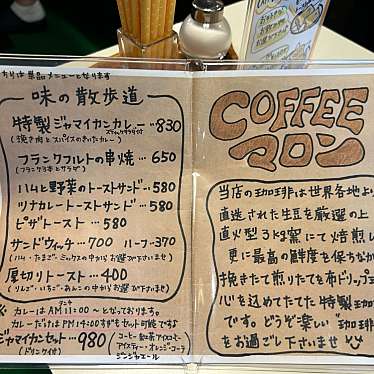 ちらは単品メニューとなります
味の散歩道
特製ジャマイカンカレー…830
スティックサラダ付
(焼き肉とスパイスのきいたカレー)
フランクフルトの串焼…650
(フランク3本とサラダ)
ハムと野菜のトーストサンド…580
ツナカレートーストサンド…580
ピザトースト…580
サンドウィッチ…700 ハーフ…370
(ハム・たまご・ミックスの中からお選び下さいませ)
厚切りトースト…400
(りんご・いちご・あんこの中からお選び下さいませ)
カレーはAM11:00〜となっております。
カレーだけはPM14:00すぎもセット可能ですよ
ジャマイカンセット…980
(ドリンク付)
コーヒー・紅茶・アイスコーヒー
アイスティー・オレンジ・コーラ
ジンジャエール
COFFEE
マロン
当店の珈琲は世界各地より
直送された生豆を厳選の上
直火型3kg窯にて焙煎し
更に最高の鮮度を保ちなが
挽きたて煎りたてを布ドリップ
心を込めたてた特製珈琲
です。どうぞ楽しい珈琲
をお過ごし下さいませ